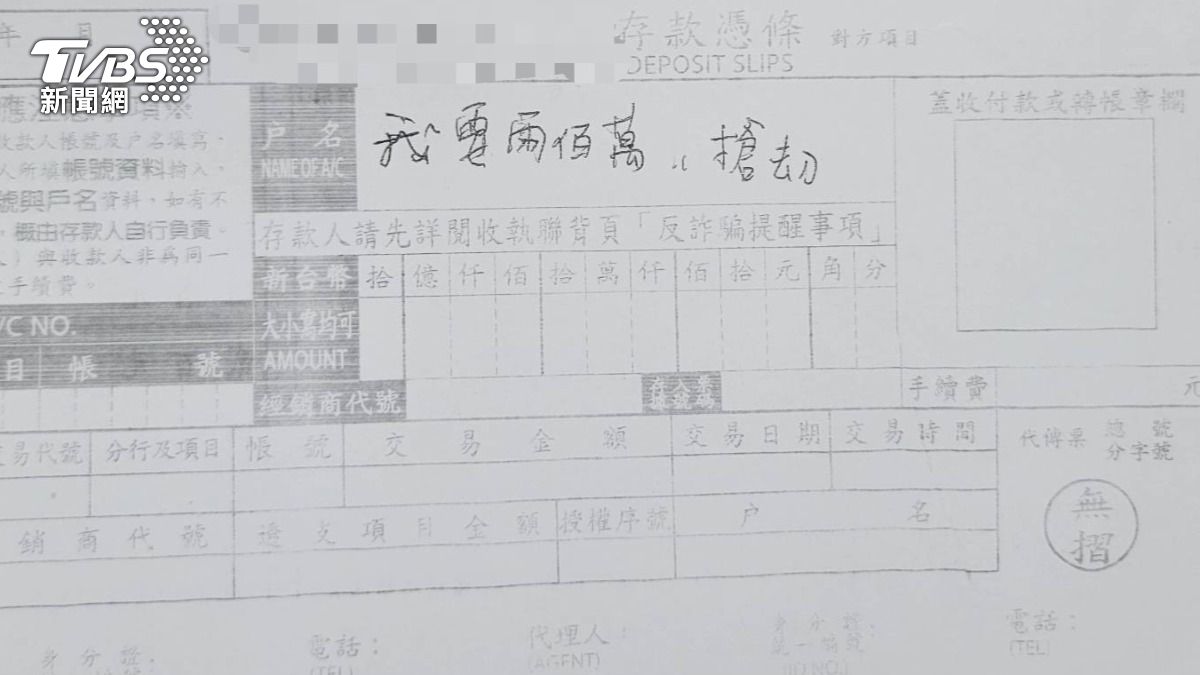 TVBS
新聞網
年 月
存款憑條 對方項目
DEPOSIT SLIPS
收款人帳號及戶名填寫，
人所填帳號資料輸入，
號與戶名資料，如有不
，概由存款人自行負責。
）與收款人非為同一
手續費。
戶名
NAME OF A/C
我要兩佰萬，搶劫
蓋收付款或轉帳章欄
存款人請先詳閱收執聯背頁「反詐騙提醒事項」
新台幣 拾 億 仟 佰 拾 萬 仟 佰 拾 元 角 分
大小寫均可
AMOUNT
/C NO.
目 帳 號
經銷商代號
手續費 元
交易代號 分行及項目 帳號 交易金額 交易日期 交易時間
代傳票 總 號
分字號
銷商代號 透支項目金額 授權序號 戶名
無
摺
身分證
電話：
(TEL)
代理人：
(AGENT)
身分證
統一編號
(ID NO.)
電話：
(TEL)